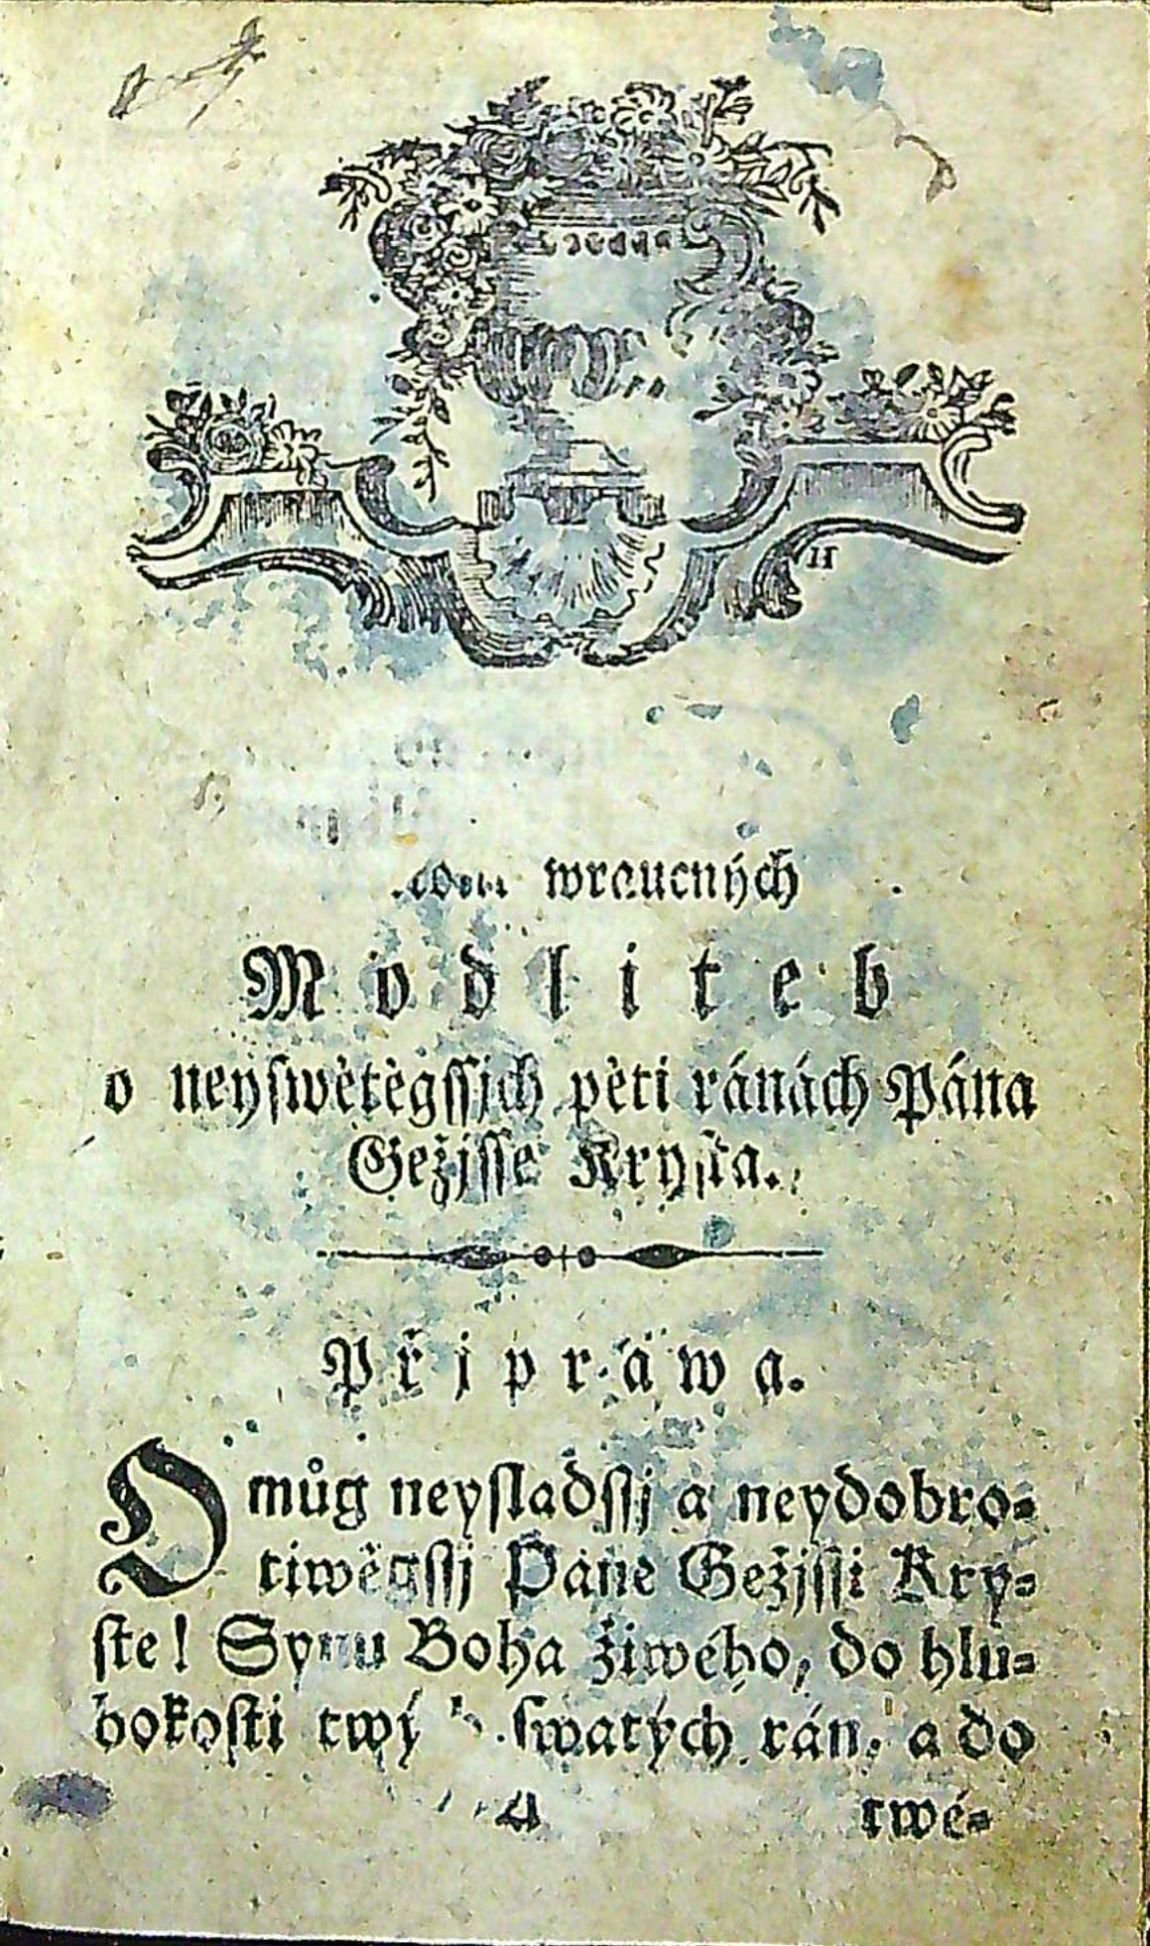 wraucných
Modliteb
o neyswětěgssjch pěti ránách Pána
Gežjsse Krysta.
Přjpráwa.
O můg neysladssj a neydobro-
tiwěgssj Pane Gežjssi Kry-
ste! Synu Boha žiwého, do hlu-
bokosti swatých rán, a do
twé-